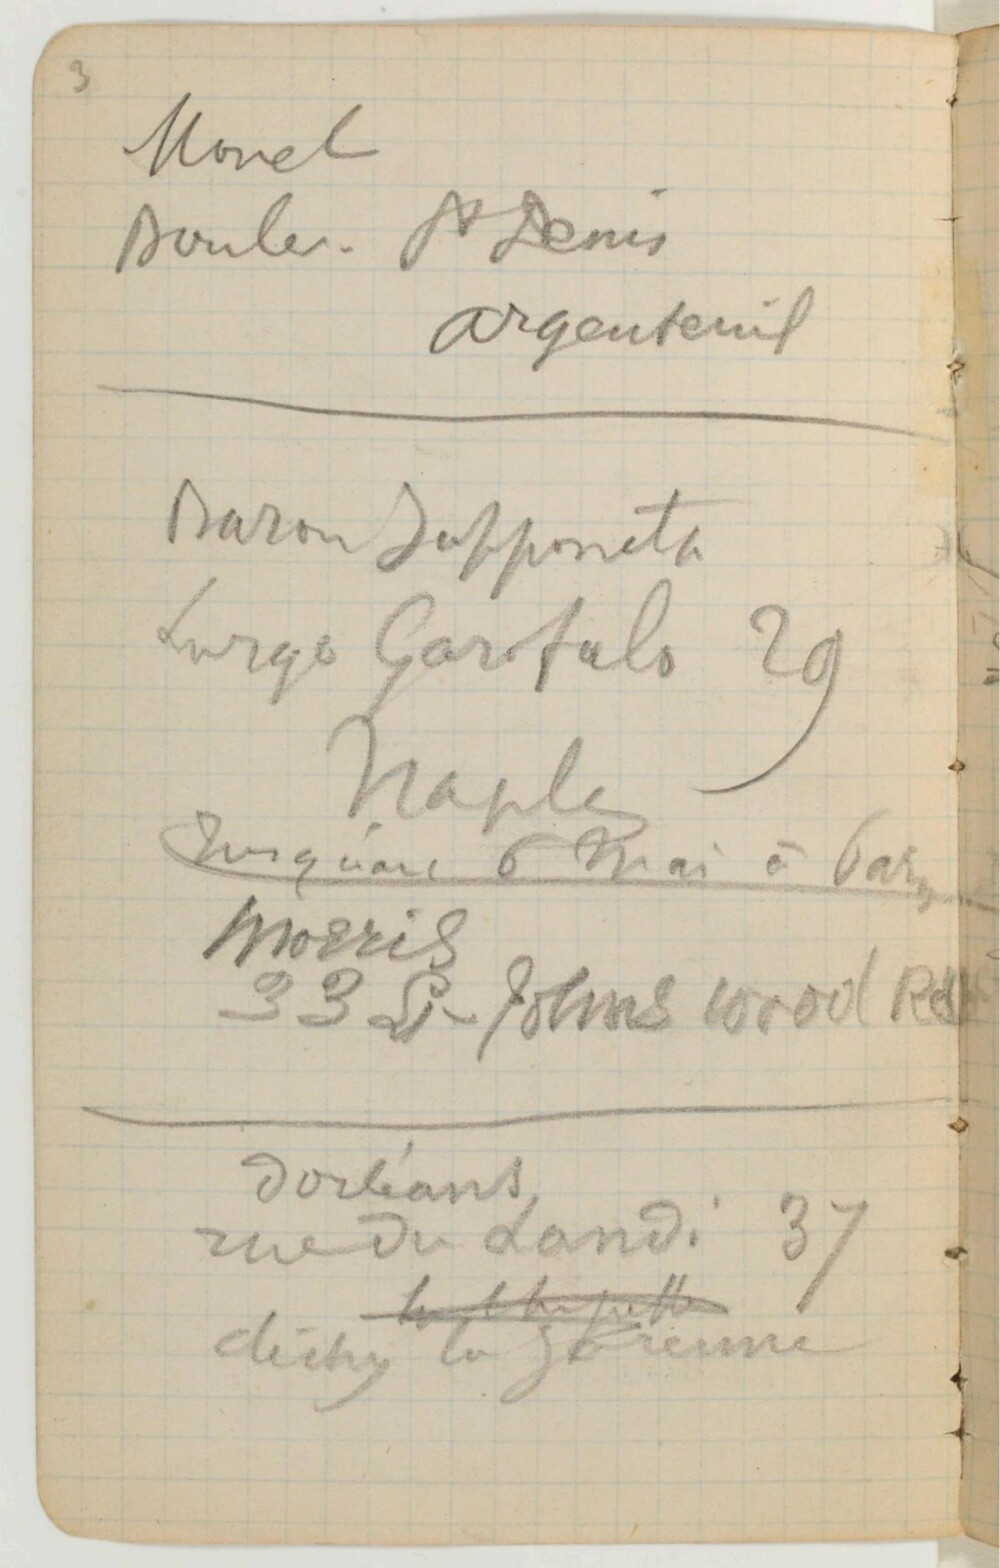 3
Monet
Boulev. St Denis
argenteuil
Baron
Largo Garofalo 29
Naples
Jusqu'au 6 Mai à Paris
Morris
33 St Johns Wood Rd
dorléans
rue du Landi 37
clichy la Garenne